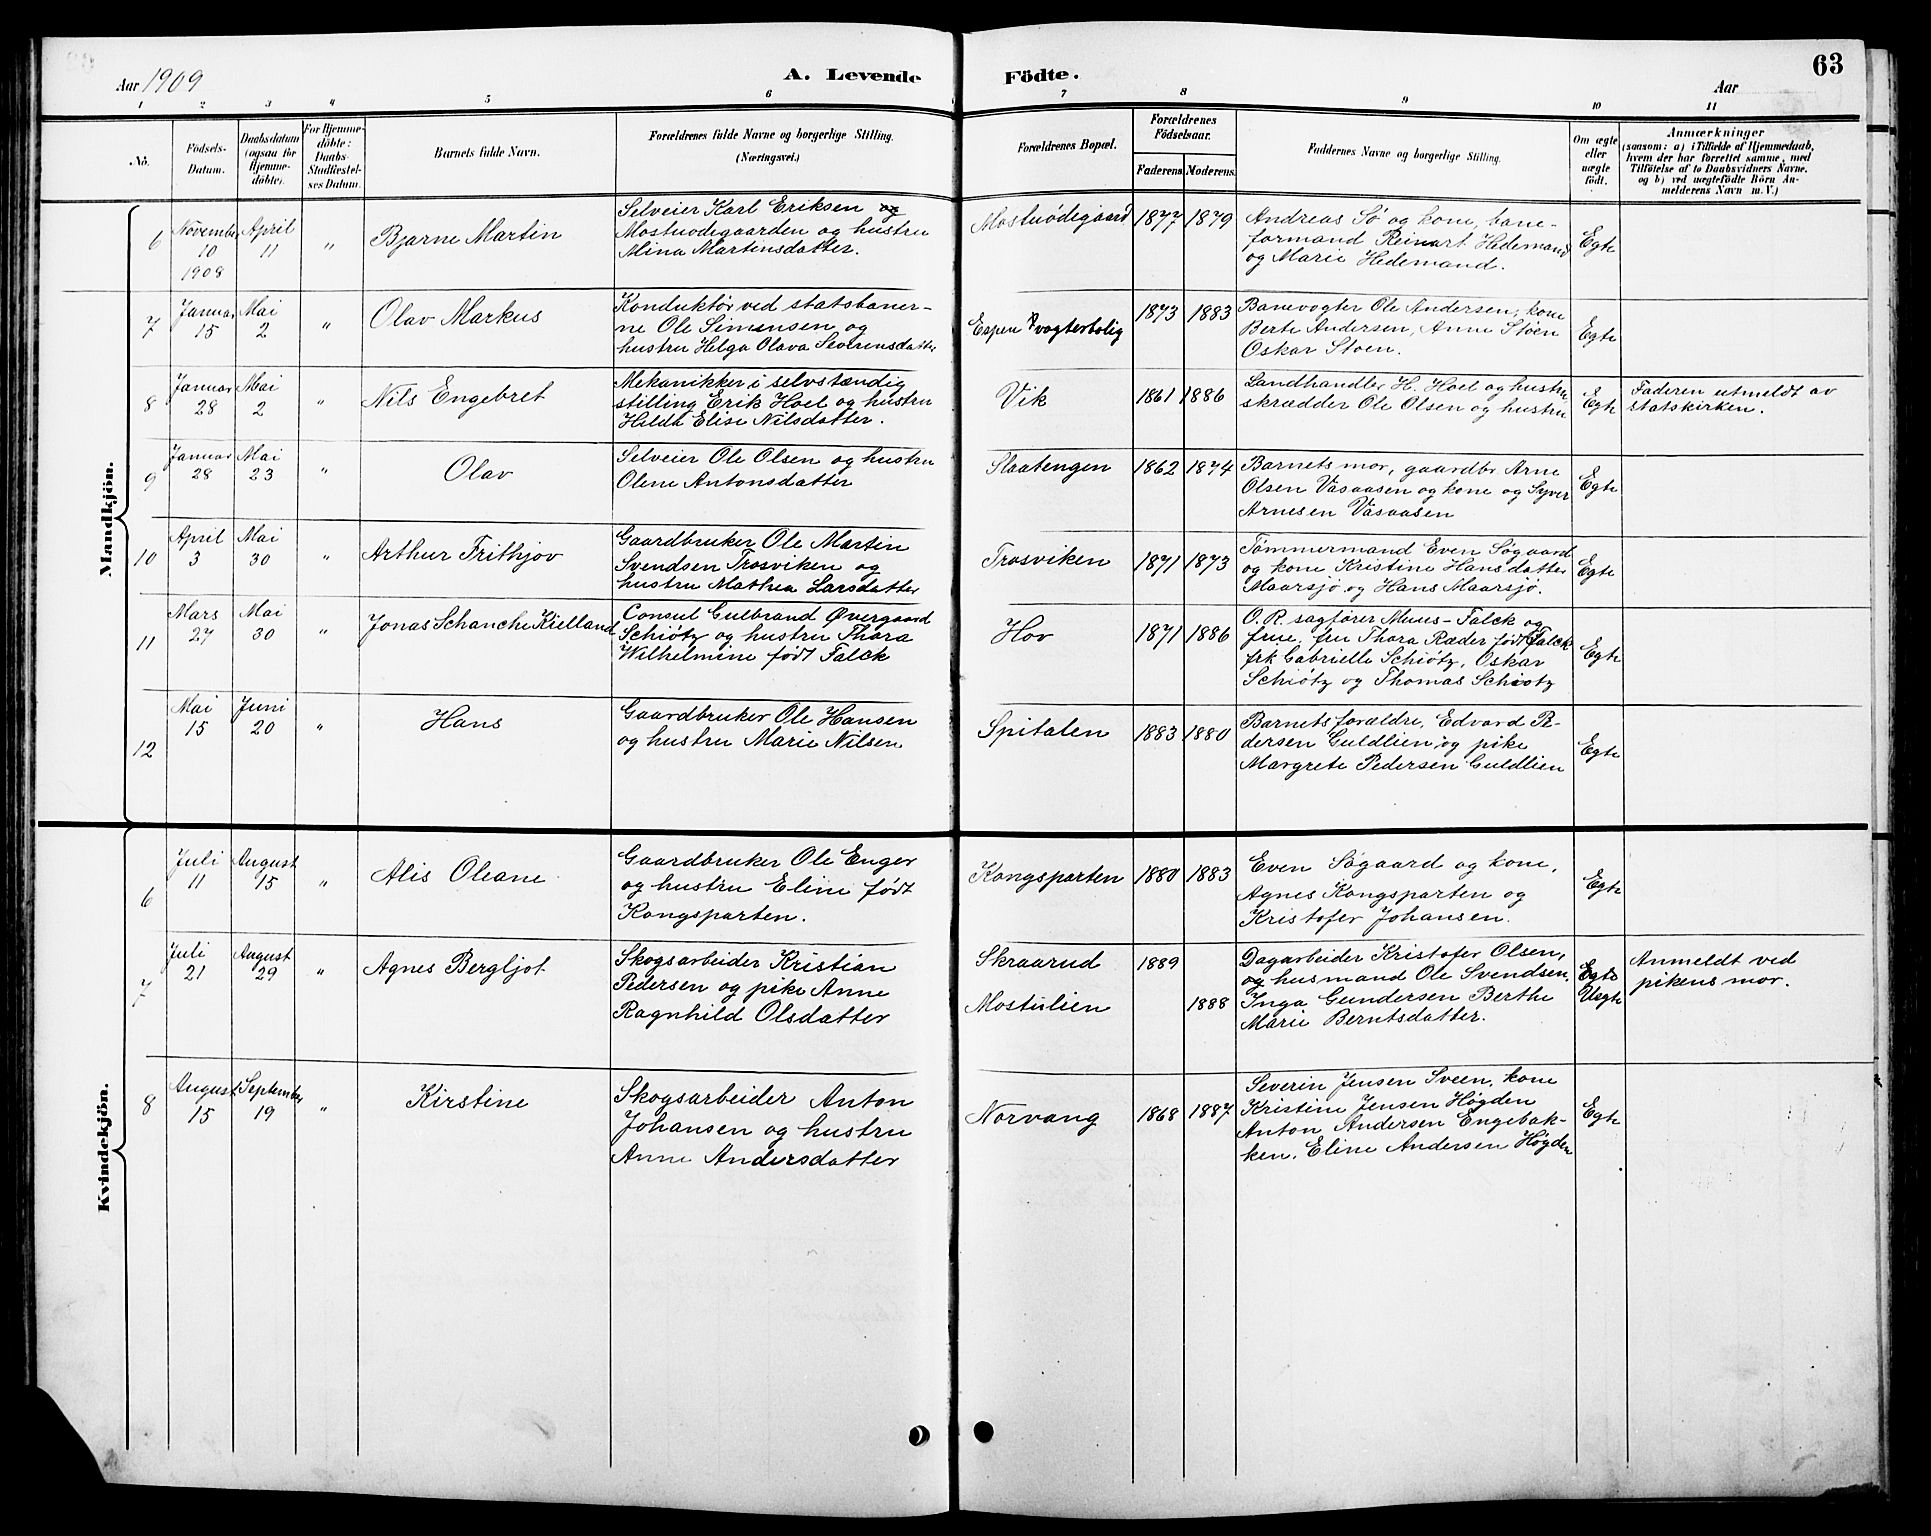 Aar 1909
A. Levende Födte.
Aar
63
1 2 3 4 5 6 7 8 9 10 11
No.
Födsels-
Datum.
Daabsdatum
(ogsaa for
Hjemme-
döbte).
For Hjemme-
döbte:
Daabs-
Stadfæstel-
ses Datum.
Barnets fulde Navn.
Forældrenes fulde Navne og borgerlige Stilling.
(Næringsvei.)
Forældrenes Bopæl.
Forældrenes
Födselsaar.
Faderens.
Moderens.
Faddernes Navne og borgerlige Stilling.
Om ægte
eller
uægte
födt.
Anmærkninger
(saasom: a) i Tilfælde af Hjemmedaab,
hvem der har forrettet samme, med
Tilföielse af to Daabsvidners Navne,
og b) ved uægtefödte Börn An-
melderens Navn m. V.)
Mandkjön.
6
November
10
1908
April
11
"
Bjarne Martin
Selveier Karl Eriksen og
Mostuødegaarden og hustru
Mina Martinsdatter.
Mostuødegaard
1877
1879
Andreas Sø og kone, bane-
formand Reinart Hedemand
og Marie Hedemand.
Egte
7
Januar
15
Mai
2
"
Olav Markus
Konduktør ved statsbaner-
ne Ole Simensen og
hustru Helga Olava Severensdatter
Espen vogterbolig
1873
1883
Banevogter Ole Andersen, kone
Berte Andersen, Anne Støen
Oskar Støen.
Egte
8
Januar
28
Mai
2
"
Nils Engebret
Mekanikker i selvstændig
stilling Erik Hoel og hustru
Hilda Elise Nilsdatter.
Vik
1861
1886
Landhandler H. Hoel og hustru
skrædder Ole Olsen og hustru
Egte
Faderen utmeldt av
statskirken.
9
Januar
28
Mai
23
"
Olav
Selveier Ole Olsen og hustru
Olene Antonsdatter
Slaatengen
1862
1874
Barnets mor, gaardbr. Arne
Olsen Vasaasen og kone og Syver
Arnesen Vasaasen
Egte
10
April
3
Mai
30
"
Arthur Frithjov
Gaardbruker Ole Martin
Svendsen Trosviken og
hustru Mathea Larsdatter
Trosviken
1871
1873
Tømmermand Even Søgaard
og kone Kristine Hansdatter
Maarsjø og Hans Maarsjø.
Egte
11
Mars
27
Mai
30
"
Jonas Schanche Kielland
Consul Gulbrand Øvergaard
Schiøtz og hustru Thora
Wilhelmine født Falck
Hov
1871
1886
O. R. sagfører Muus-Falck og
frue, fru Thora Ræder født Falck
frk Gabrielle Schiøtz, Oskar
Schiøtz og Thomas Schiøtz
Egte
12
Mai
15
Juni
20
"
Hans
Gaardbruker Ole Hansen
og hustru Marie Nilsen
Spitalen
1883
1880
Barnets forældre, Edvard P-
dersen Guldlien og pike
Margrete Pedersen Guldlien
Egte
Kvindekjön.
6
Juli
11
August
15
"
Alis Oleane
Gaardbruker Ole Enger
og hustru Eline født
Kongsparten.
Kongsparten
1880
1883
Even Søgaard og kone,
Agnes Kongsparten og
Kristofer Johansen.
Egte
7
Juli
21
August
29
"
Agnes Bergljot
Skogsarbeider Kristian
Pedersen og pike Anne
Ragnhild Olsdatter
Skraarud
Mostulien
1889
1888
Dagarbeider Kristofer Olsen,
og husmand Ole Svendsen,
Inga Gundersen Berthe
Marie Berntsdatter.
Egte
Uegte
Anmeldt ved
pikens mor.
8
August
15
September
19
"
Kirstine
Skogsarbeider Anton
Johansen og hustru
Anne Andersdatter
Norvang
1868
1887
Severin Jensen Sveen, kone
Kristine Jensen Høgden
Anton Andersen Engebak-
ken, Eline Andersen Høgden
Egte